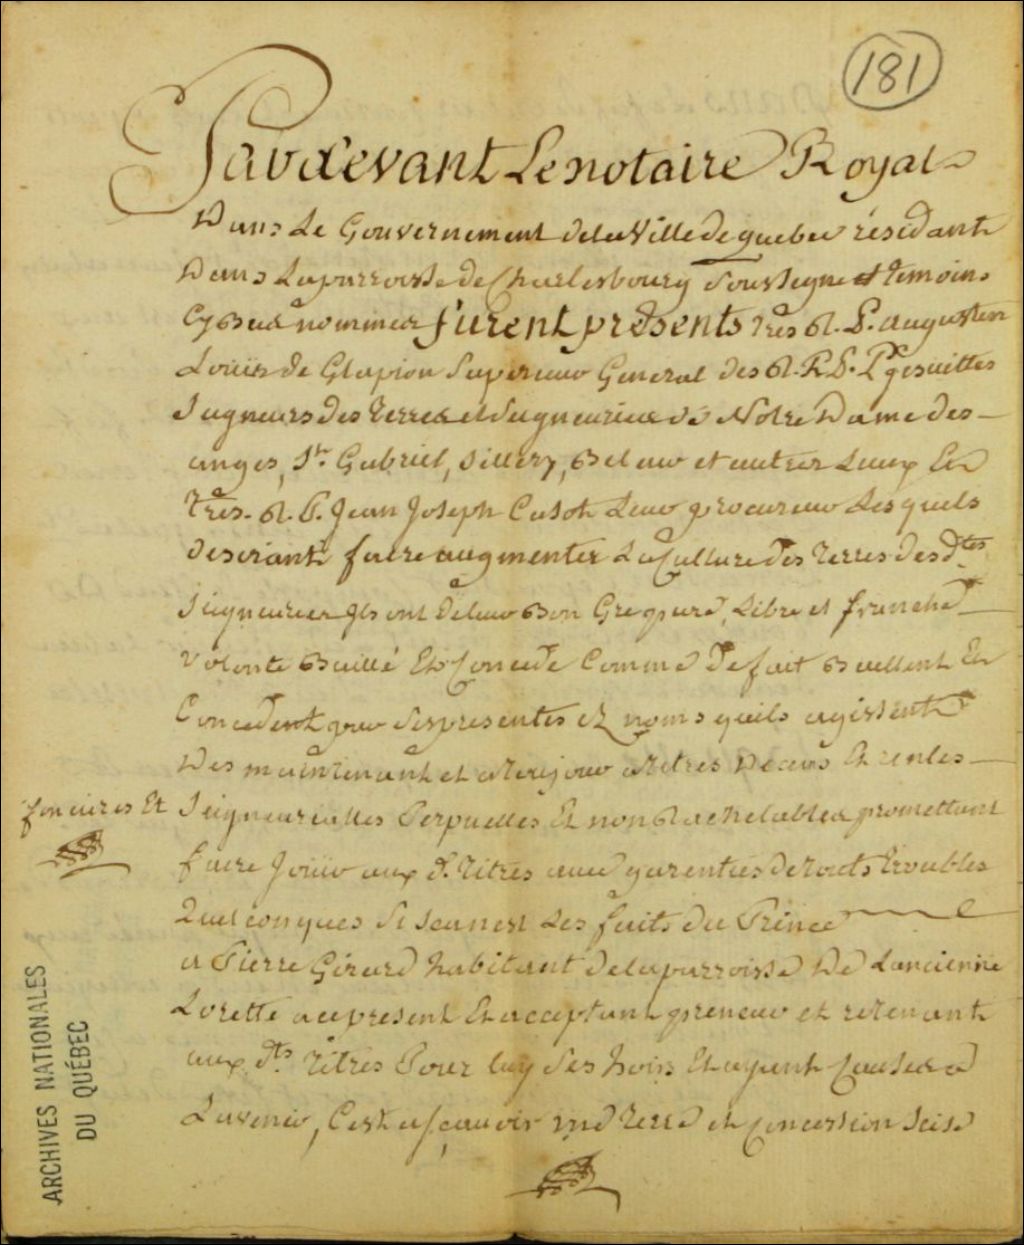 181
Pardevant Le notaire Royal
Dans Le Gouvernement dela Ville de quebec résidant
Dans La parroisse de Charlesbourg Soussigne et temoins
Cy Bas nommés furent présents tres R. P. augustin
Louis de Glapion Superieur General des R. R. P. P. Jesuittes
Seigneurs des terres et Seigneuries de Notre Dame des
anges, St. Gabriel, Sillery, Belair et autres Lieux Et
tres. R. P. Jean Joseph Casot Leur procureur Lesquels
desirant faire augmenter La Culture des terres desdtes
Seigneuries Ils ont de leur Bon Gre pure, Libre et franche
volonte Baillé Et Concede Comme De fait Baillent Et
Concedent par Ses presentes ez noms quils agissent
Des maintenant et atoujour atitres De cens Et rentes
foncieres Et Seigneurialles Perpuelles Et non Rachetables promettant
faire Jouir aux d. titres avec garenties de touts troubles
Quelconques Si Ce nest Les faits du Prince
a Pierre Girard habitant dela parroisse De Lancienne
Lorette ace present Et acceptant preneur et retenant
aux dts titres Pour luy Ses hoirs Et ayant Causes a
Lavenir, Cest ascavoir une terre et Concession Scise
ARCHIVES NATIONALES
DU QUÉBEC